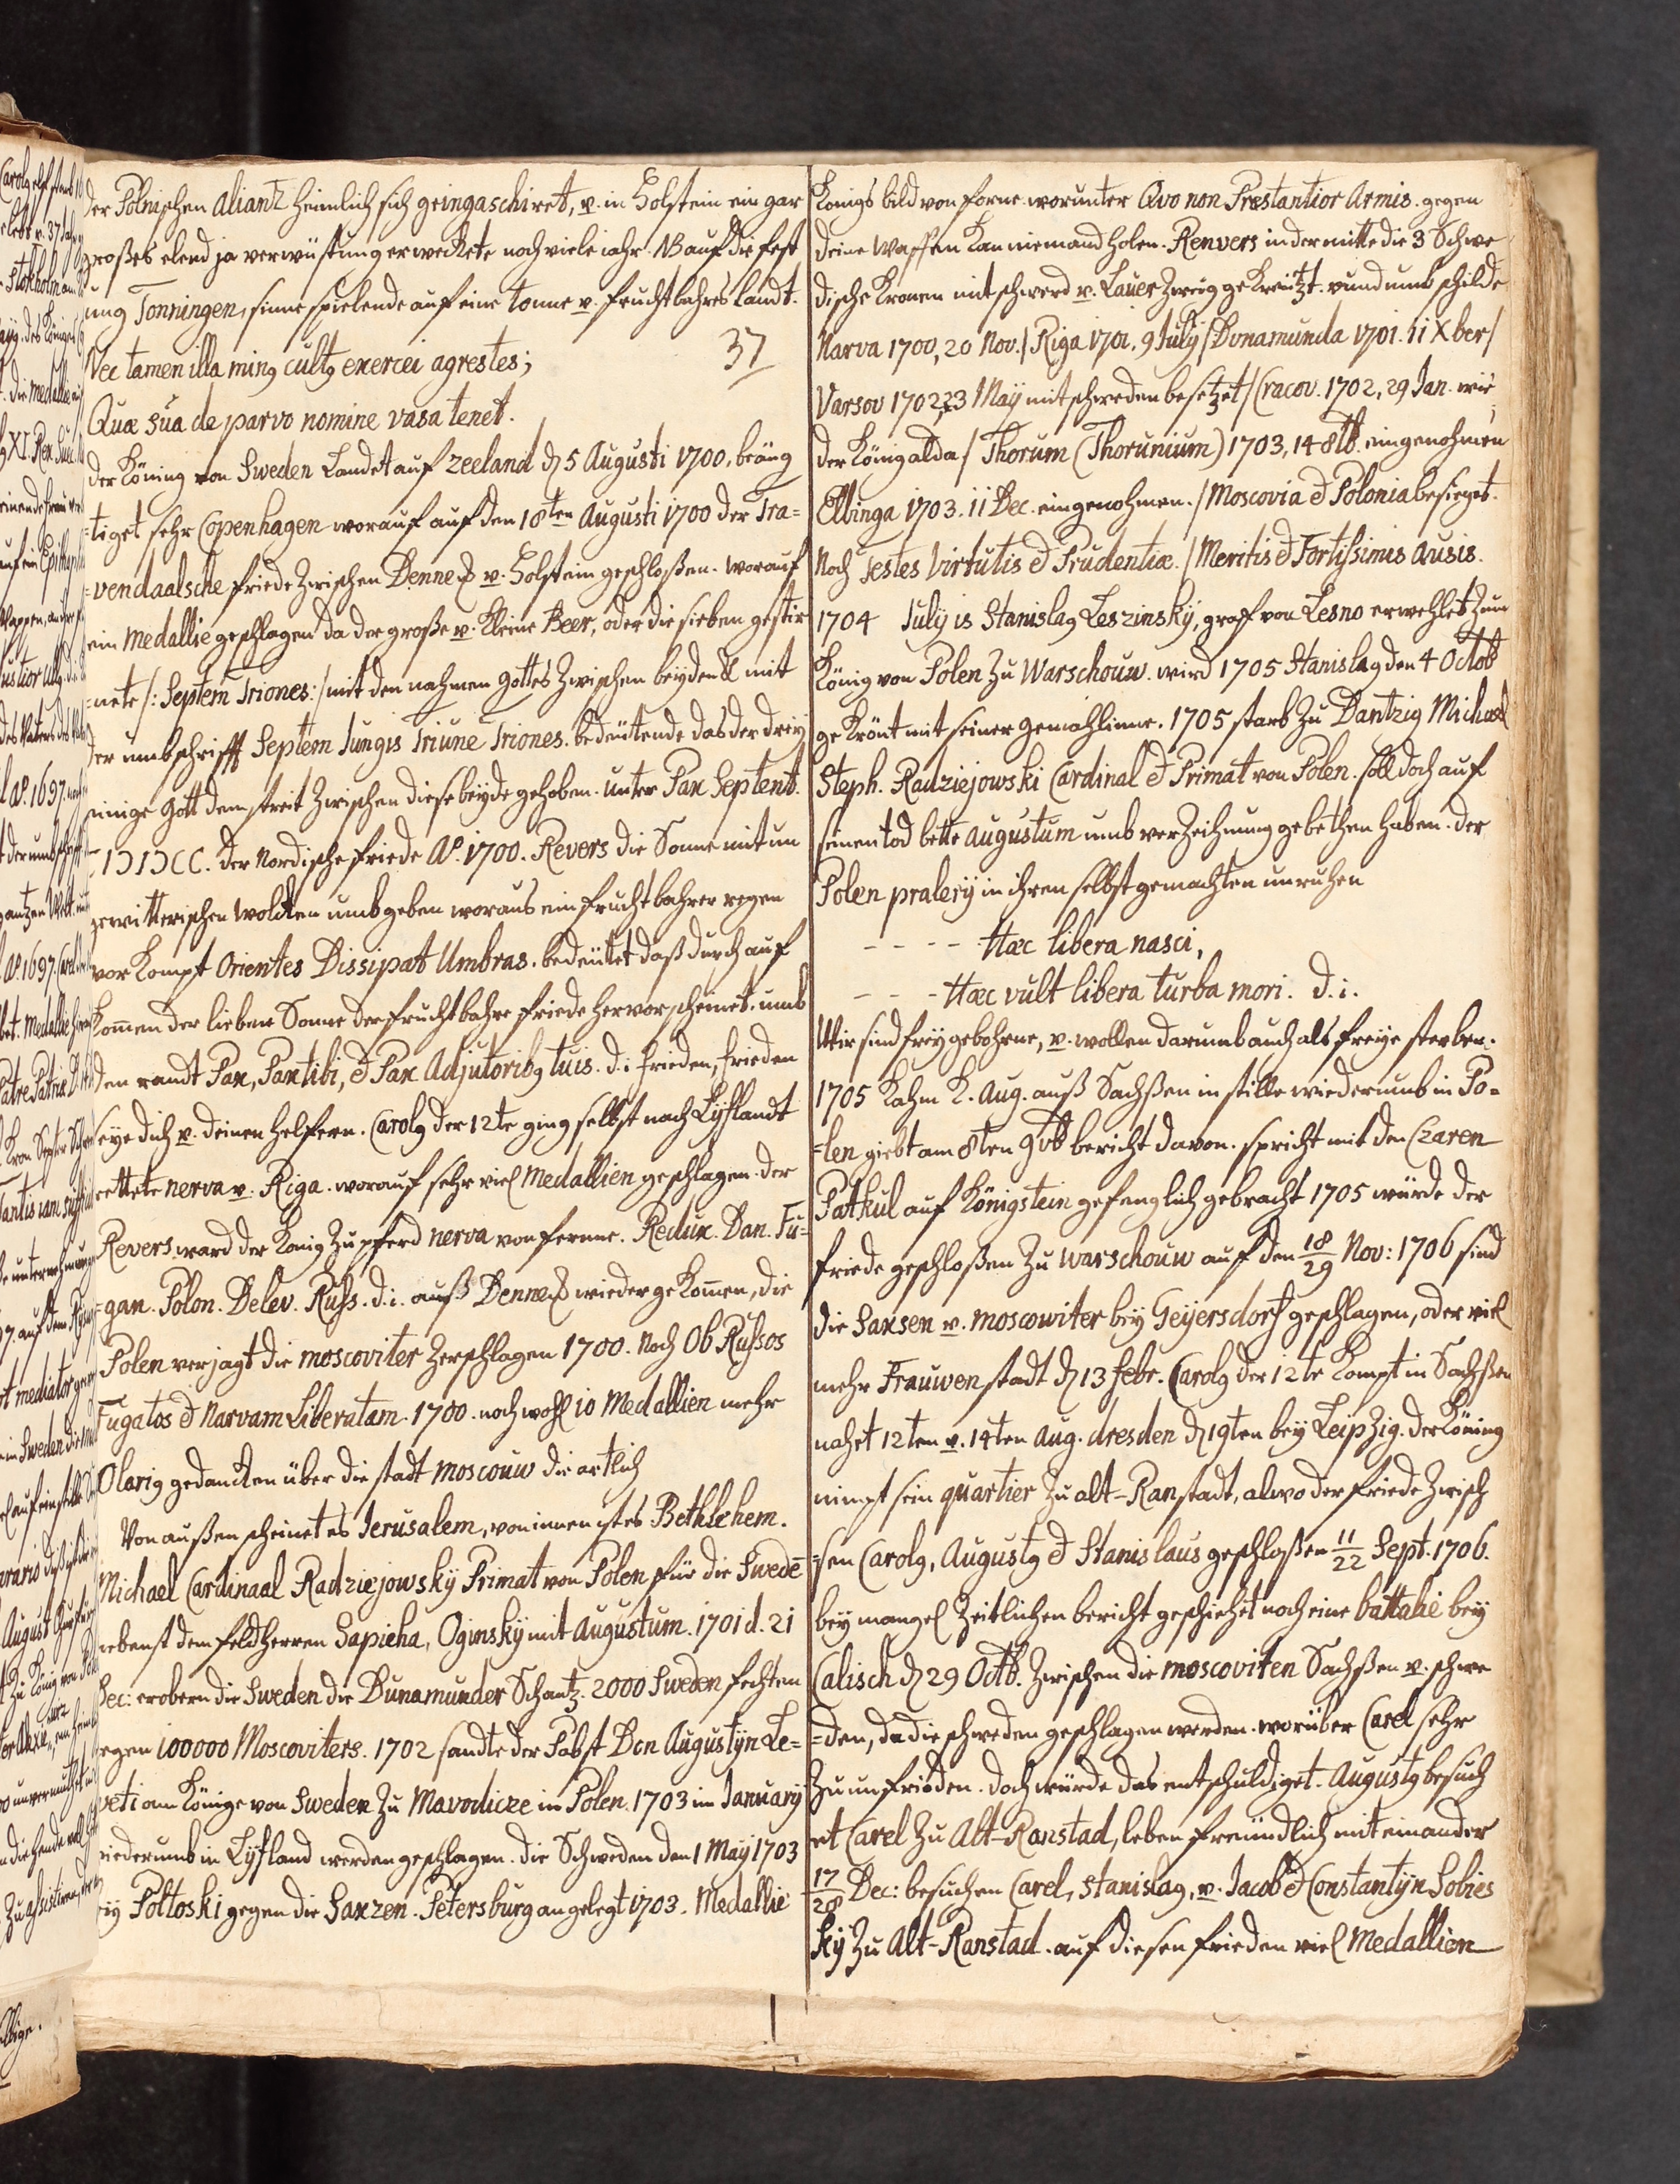 der Polnischen Aliantz heimlich sich geingaschiret, v. in Holstein ein gar
großes elend ja verwüstung erweckete noch viele iahr. NB auf die fest
ung Tonningen, sinne spielende auf eine tonne v. fruchtbahres landt.
Nec tamen illa ming cultg exercei agrestes;
37
Quæ sua de parvo nomine vasa tenet.
der Köning von Sweden Landet auf Zeeland d 5 Augusti 1700. beäng
=tiget sehr Copenhagen worauf auf den 18ten Augusti 1700 der Tra=
=vendaalsche friede Zwischen Dennem v. Holstein geschloßen. worauf
ein Medallie geschlagen da der große v. Kleine Beer, oder die sieben gestir
=nete /: Septem Triones:/ mit den nahmen Gottes Zwischen beyden mit
der umbschrifft Septem Iungis Triune Triones. bedeütende das der drey
einige Gott dem streit Zwischen diese beyde gehoben. unter Pax Septent.
IƆIƆCC. der Nordische friede Aº. 1700. Revers die Sonne mit un
gewitterischen Wolcken umbgeben woraus ein fruchtbahrer regen
vor Kompt Orientes Dissipat Umbras. bedeütet daß durch auf
kom̃en der lieben Sonne der fruchtbahre friede hervor scheinet. umb
den randt Pax, Pax tibi, & Pax Adjutoribg tuis. d.i. frieden, frieden
seye dich v. deinen helfern. Carolg der 12te ging selbst nach Lyflandt
rettete nerva v. Riga. worauf sehr viel Medallien geschlagen. der
Revers. ward der König Zu pferd nerva von fernne. Redux. Dan. Fu=
=gan. Polon. Delev. Russ. d.i. auß Dennem wieder gekom̃en, die
Polen verjagt die moscoviter Zerschlagen 1700. Noch Ob Russos
Fugatos & Narvam Liberatam. 1700. noch wohl 10 Medallien mehr
Olarig gedancken über die stadt Moscouw die artlich
Von außen scheinet es Jerusalem, von innen ist es Bethlehem.
Michael Cardinaal Radziejowsky Primat von Polen für die Swedē
nebenst dem feldherren Sapieha, Oginsky mit Augustum. 1701 d. 21
Dec: erobern die Sweden die Dunamunder Schantz. 2000 Sweden fechten
gegen 100000 Moscoviters. 1702 sandte der Pabst Don Augustijn Le=
veti am Könige von Sweden Zu Mavodicze in Polen. 1703 im January
wiederumb in Lyfland werden geschlagen. die Schweden den 1 May 1703
bey Poltoski gegen die Saxzen. Petersburg angelegt 1703. Medallie
Königs bild von forne worunter Qvo non Præstantior Armis. gegen
deine Waffen kan niemand holen. Renvers in der mitte die 3 Schwe
dische Kronen mit schwerd v. Lauer Zweig gekreützt. rund umb schilde
Narva 1700, 20 Nov./ Riga 1701. 9 July / Dunamunda 1701. 11 Xber /
Varsov 1702, 23 May mit schweden besetzet / Cracov. 1702, 29 Jan. wie
der König alda / Thorum (Thorunium) 1703, 14 8tb. eingenohmen
Elbinga 1703. 11 Dec. eingenohmen. / Moscovia & Polonia besieget.
Noch Testes Virtutis & Prudentiæ. / Meritis & Fortissimis Ausis.
1704 July is Stanislag Leszinsky, graf von Lesno erwehlet Zum
König von Polen Zu Warschouw. wird 1705 Stanislag den 4 Octob
gekrönt mit seiner gemahlinne. 1705 starb Zu Dantzig Michael
Steph. Radziejowski Cardinal & Primat von Polen. soll doch auf
seinen tod bette Augustum umb verZeihnung gebethen haben. der
Polen pralery in ihren selbst gemachten unruhen
- - - - Hæc libera nasci,
- - - Hæc vult libera turba mori. d.i.
Wir sind frey gebohrne, v. wollen darumb auch als freye sterben.
1705 Kahm K. Aug. auß Sachßen in stille wiederumb in Po=
=len giebt am 8ten 9vb bericht davon. spricht mit den Czaren
Patkul auf Königstein gefenglich gebracht 1705 würde der
friede geschloßen Zu Warschouw auf den 18/29 Nov: 1706 sind
die Saxsen v. moscowiter bey Geyersdorf geschlagen, oder viel
mehr Frauwenstadt d 13 febr. Carolg der 12te Kompt in Sachßen
nahet 12ten v. 14ten Aug. dresden d 19ten bey LeipZig. der Köning
nimpt sein quartier Zu alt-Ranstadt, alwo der friede Zwisch
=sen Carolg, Augustg & Stanislaus geschloßen 11/22 Sept. 1706.
bey mangel Zeitlichen bericht geschiehet noch eine battalie bey
Calisch d 29 Octb. Zwischen die moscoviten Sachßen v. schwe
=den, da die schweden geschlagen werden. worüber Carel sehr
Zu unfrieden. doch würde das entschuldiget. Augustg besuch
et Carel Zu Alt-Ranstad, leben freündlich mit einander
17/28 Dec: besuchen Carel, Stanislag, v. Jacob & Constantijn Sobies
ky Zu Alt-Ranstad. auf diesen frieden viel Medallien